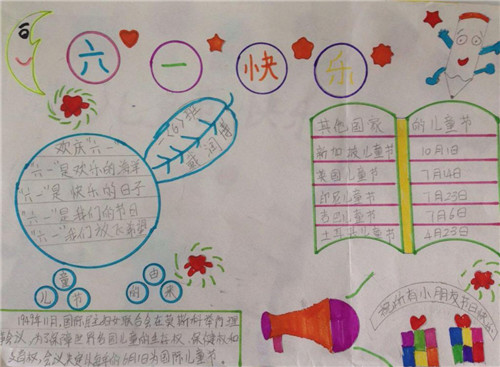 六一快乐
一(6)班
欢庆"六一"
"六一"是欢乐的海洋
"六一"是快乐的日子
"六一"是我们的节日
"六一"我们放飞希望
其他国家的儿童节
新加坡儿童节 10月1日
英国儿童节 7月14日
印尼儿童节 7月23日
古巴儿童节 7月6日
土耳其儿童节 4月23日
儿童节的由来
1949年11月,国际民主妇女联合会在莫斯科举行理
事会议,为了保障世界各国儿童的生存权、保健权和
受教育权,会议决定以每年的6月1日为国际儿童节。
祝所有小朋友节日快乐